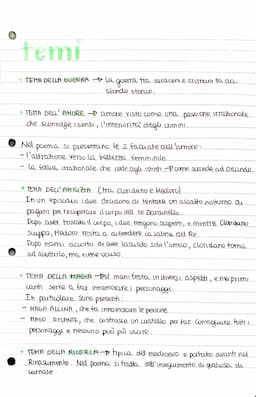 temi
• TEMA DELLA GUERRA → la guerra tra saraceni e cristiani fa da
sfondo storico.
• TEMA DELL'AMORE → amore visto come una passione irrazionale
che sconvolge i sensi, l'interiorità degli uomini.
Nel poema si presentano le 2 facciate dell'amore:
- l'attrazione verso la bellezza femminile
- la follia irrazionale che cede agli istinti → come succede ad Orlando.
• TEMA DELL'AMICIZIA (tra Cloridano e Medoro)
In un episodio i due decidono di tentare un assalto notturno ai
pagani per recuperare il corpo del re Dardinello.
Dopo aver trovato il corpo, i due vengono scoperti, e mentre Cloridano
scappa, Medoro resta a difendere la salma del Re.
Dopo essersi accorto di aver lasciato solo l'amico, Cloridano torna
ad aiutarlo, ma viene ucciso.
• TEMA DELLA MAGIA → si manifesta in diversi aspetti, e nei primi
canti serve a far innamorare i personaggi.
In particolare sono presenti:
- MAGA ALCINA, che fa innamorare le persone
- MAGO ATLANTE, che costruisce un castello per far convogliare tutti i
personaggi e nessuno può più uscire.
• TEMA DELLA RICERCA → tipica del medioevo e portata avanti nel
Rinascimento. Nel poema si tratta dell'inseguimento di qualcosa di
carnale.